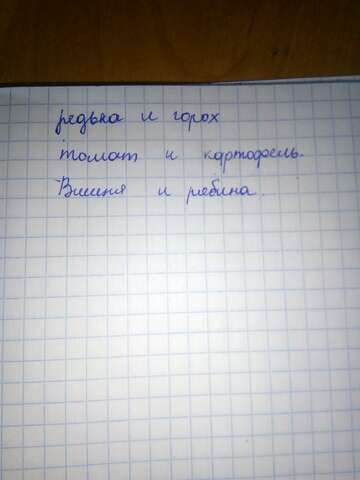 редька и горох
томат и картофель.
Вишня и рябина.